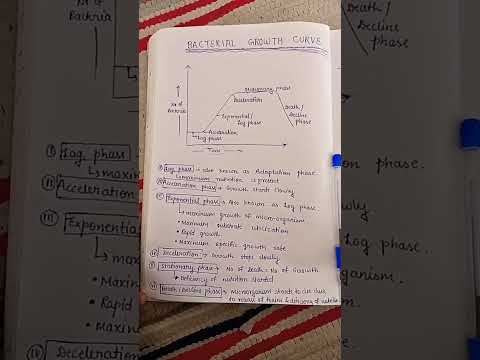 BACTERIAL GROWTH CURVE
No. of
Bacteria
Stationary phase
Deceleration
Exponential /
Log phase
Acceleration
Lag phase
Death /
Decline
phase
Time
i) Lag phase → also known as Adaptation phase
↳ maximum nutrition is present
ii) Acceleration phase → Growth starts slowly
iii) Exponential phase → Also known as Log phase
↳ maximum growth of micro-organism
• Maximum substrate utilization
• Rapid growth
• Maximum specific growth rate
iv) Deceleration → Growth stops slowly
v) Stationary phase → No of Death = No of Growth
Deficiency of nutrition started
vi) Death / Decline phase → microorganism starts to die due
to release of toxins & deficiency of
Bacteria
i) Lag phase
↳ maximum
Acceleration
iii) Exponential
↳ max
• Maxim
• Rapid
• Maxim
iv) Deceleration
Death /
Decline
phase
phase.
Log phase.
organism.